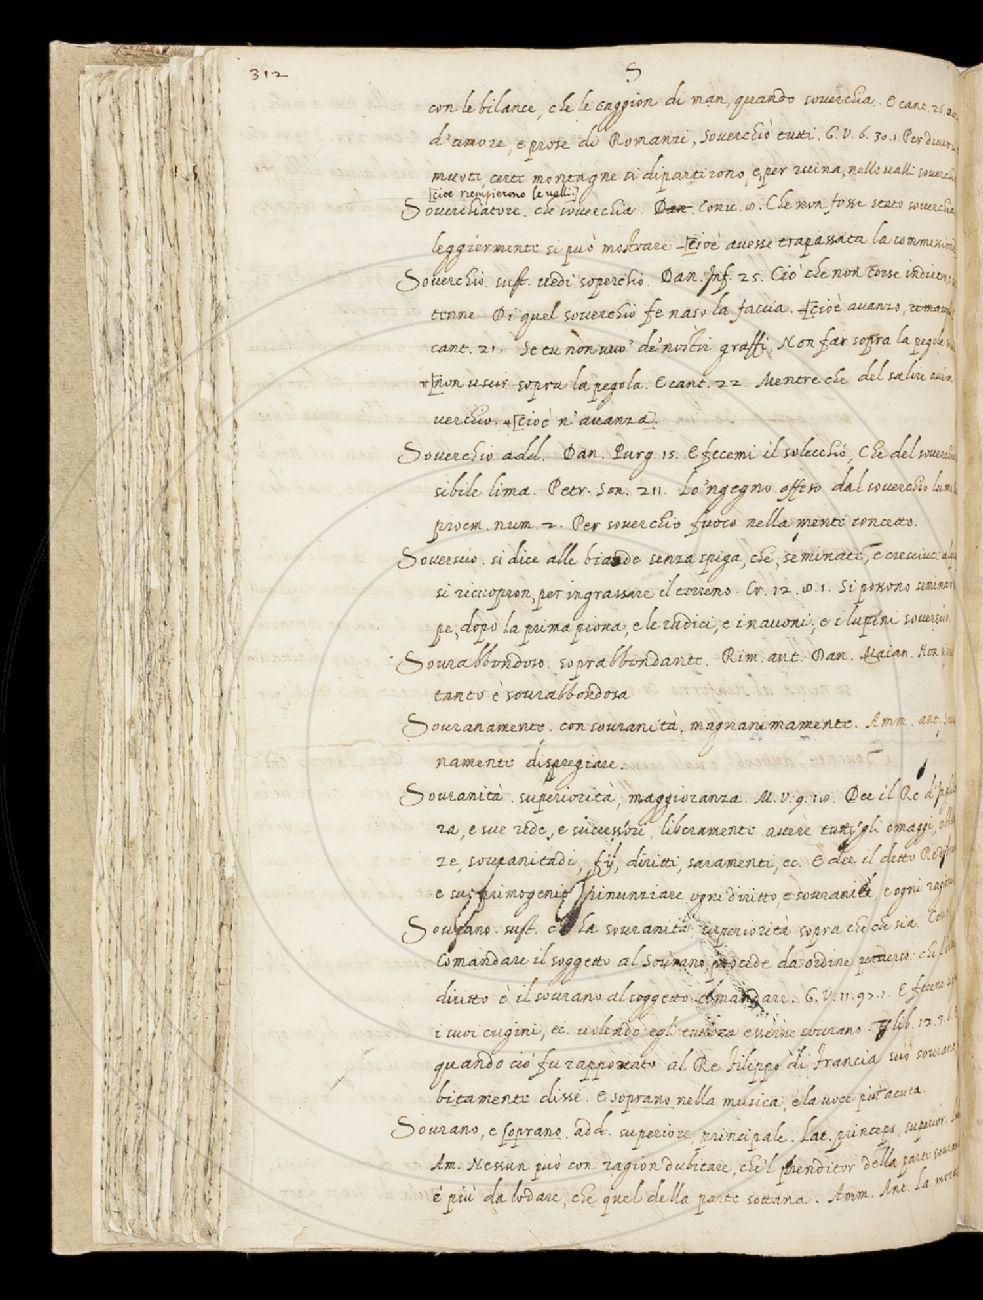 312 S
con le bilance, che le caggion di man, quando soverchia. E cant. 26
d'amore, e prose di Romanzi, soverchiò tutti. G. V. 6. 30. 1. Per
muoti, certe montagne si dipartirono, e per ruina, nelle valli
[cioè riempierono le valli]
Soverchiatore. che soverchia. Dan. Conv. 8. Che non fosse stato
leggiermente si può mostrare [cioè avesse trapassata la
Soverchio. sust. vedi soperchio. Dan. Inf. 25. Ciò che non corse indietro,
tenne Di quel soverchio fe naso la faccia. [cioè avanzo,
cant. 21. Se tu non vuo' de' nostri graffi, Non far sopra la pegola
[non usur sopra la pegola. E cant. 22. Mentre che del salire
verchio. [cioè n'avanza].
Soverchio add. Dan. Purg. 15. E fecemi il solecchio, Che del
sibile lima. Petr. Son. 211. Lo 'ngegno offeso dal soverchio
proem. num. 2. Per soverchio fuoco nella mente concetto.
Sovescio. si dice alle biade senza spiga, che, seminate, e cresciute
si ricuopron, per ingrassare il terreno. Cr. 12. 8. 1. Si possono
pe, dopo la prima piova, e le radici, e i navoni, e i lupini
Sovrabbondoso. soprabbondante. Rim. ant. Dan. Maian. Non
tanto è sovrabbondosa
Sovranamente. con sovranità, magnanimamente. Amm. ant.
namente dispregiare.
Sovranità. superiorità, maggioranza. M. V. 9. Dee il Re
ra, e sue rede, e successori, liberamente avere tutti gli omaggi,
ze, sovranitadi, fij, diritti, saramenti, ec. E dee il detto
e suo primogenito rinunziare ogni diritto, e ogni
Sovrano. sust. che ha sovranità superiorità sopra che che sia.
Comandare il soggetto al sovrano, procede da ordine perverso.
diritto è il sovrano al soggetto comandare. G. V. 11. E fecene
i suoi cugini, ec. volendo egli essere sovrano. lib. 12.
quando ciò fu rapportato al Re Filippo di Francia suo sovrano
bitamente disse. E soprano nella musica, è la voce più acuta.
Sovrano, e soprano. add. superiore, principale. Lat. princeps, superior.
Am. Nessun può con ragion dubitare, che'l prenditor della parte
è più da lodare, che quel della parte sottana. Amm. Ant. la